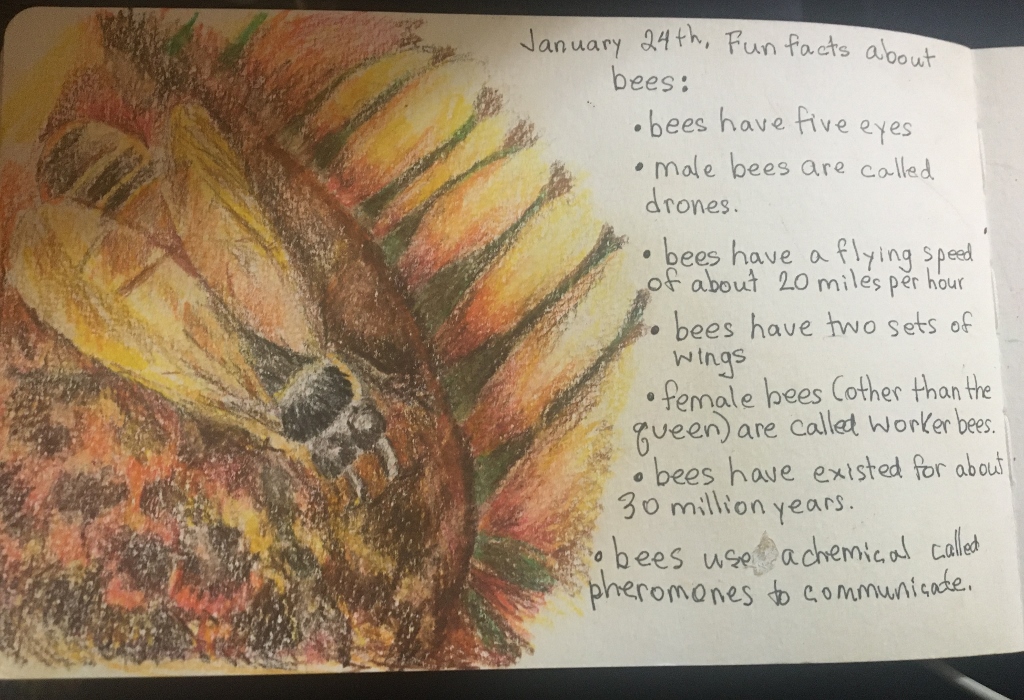 January 24th. Fun facts about
bees:
• bees have five eyes
• male bees are called
drones.
• bees have a flying speed
of about 20 miles per hour
• bees have two sets of
wings
• female bees (other than the
queen) are called worker bees.
• bees have existed for about
30 million years.
• bees use a chemical called
pheromones to communicate.